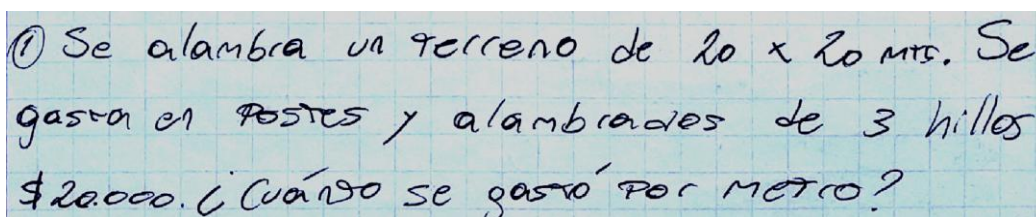 ① Se alambra un terreno de 20 x 20 mts. Se
gasta en postes y alambrados de 3 hillos
$20.000. ¿Cuánto se gastó por metro?